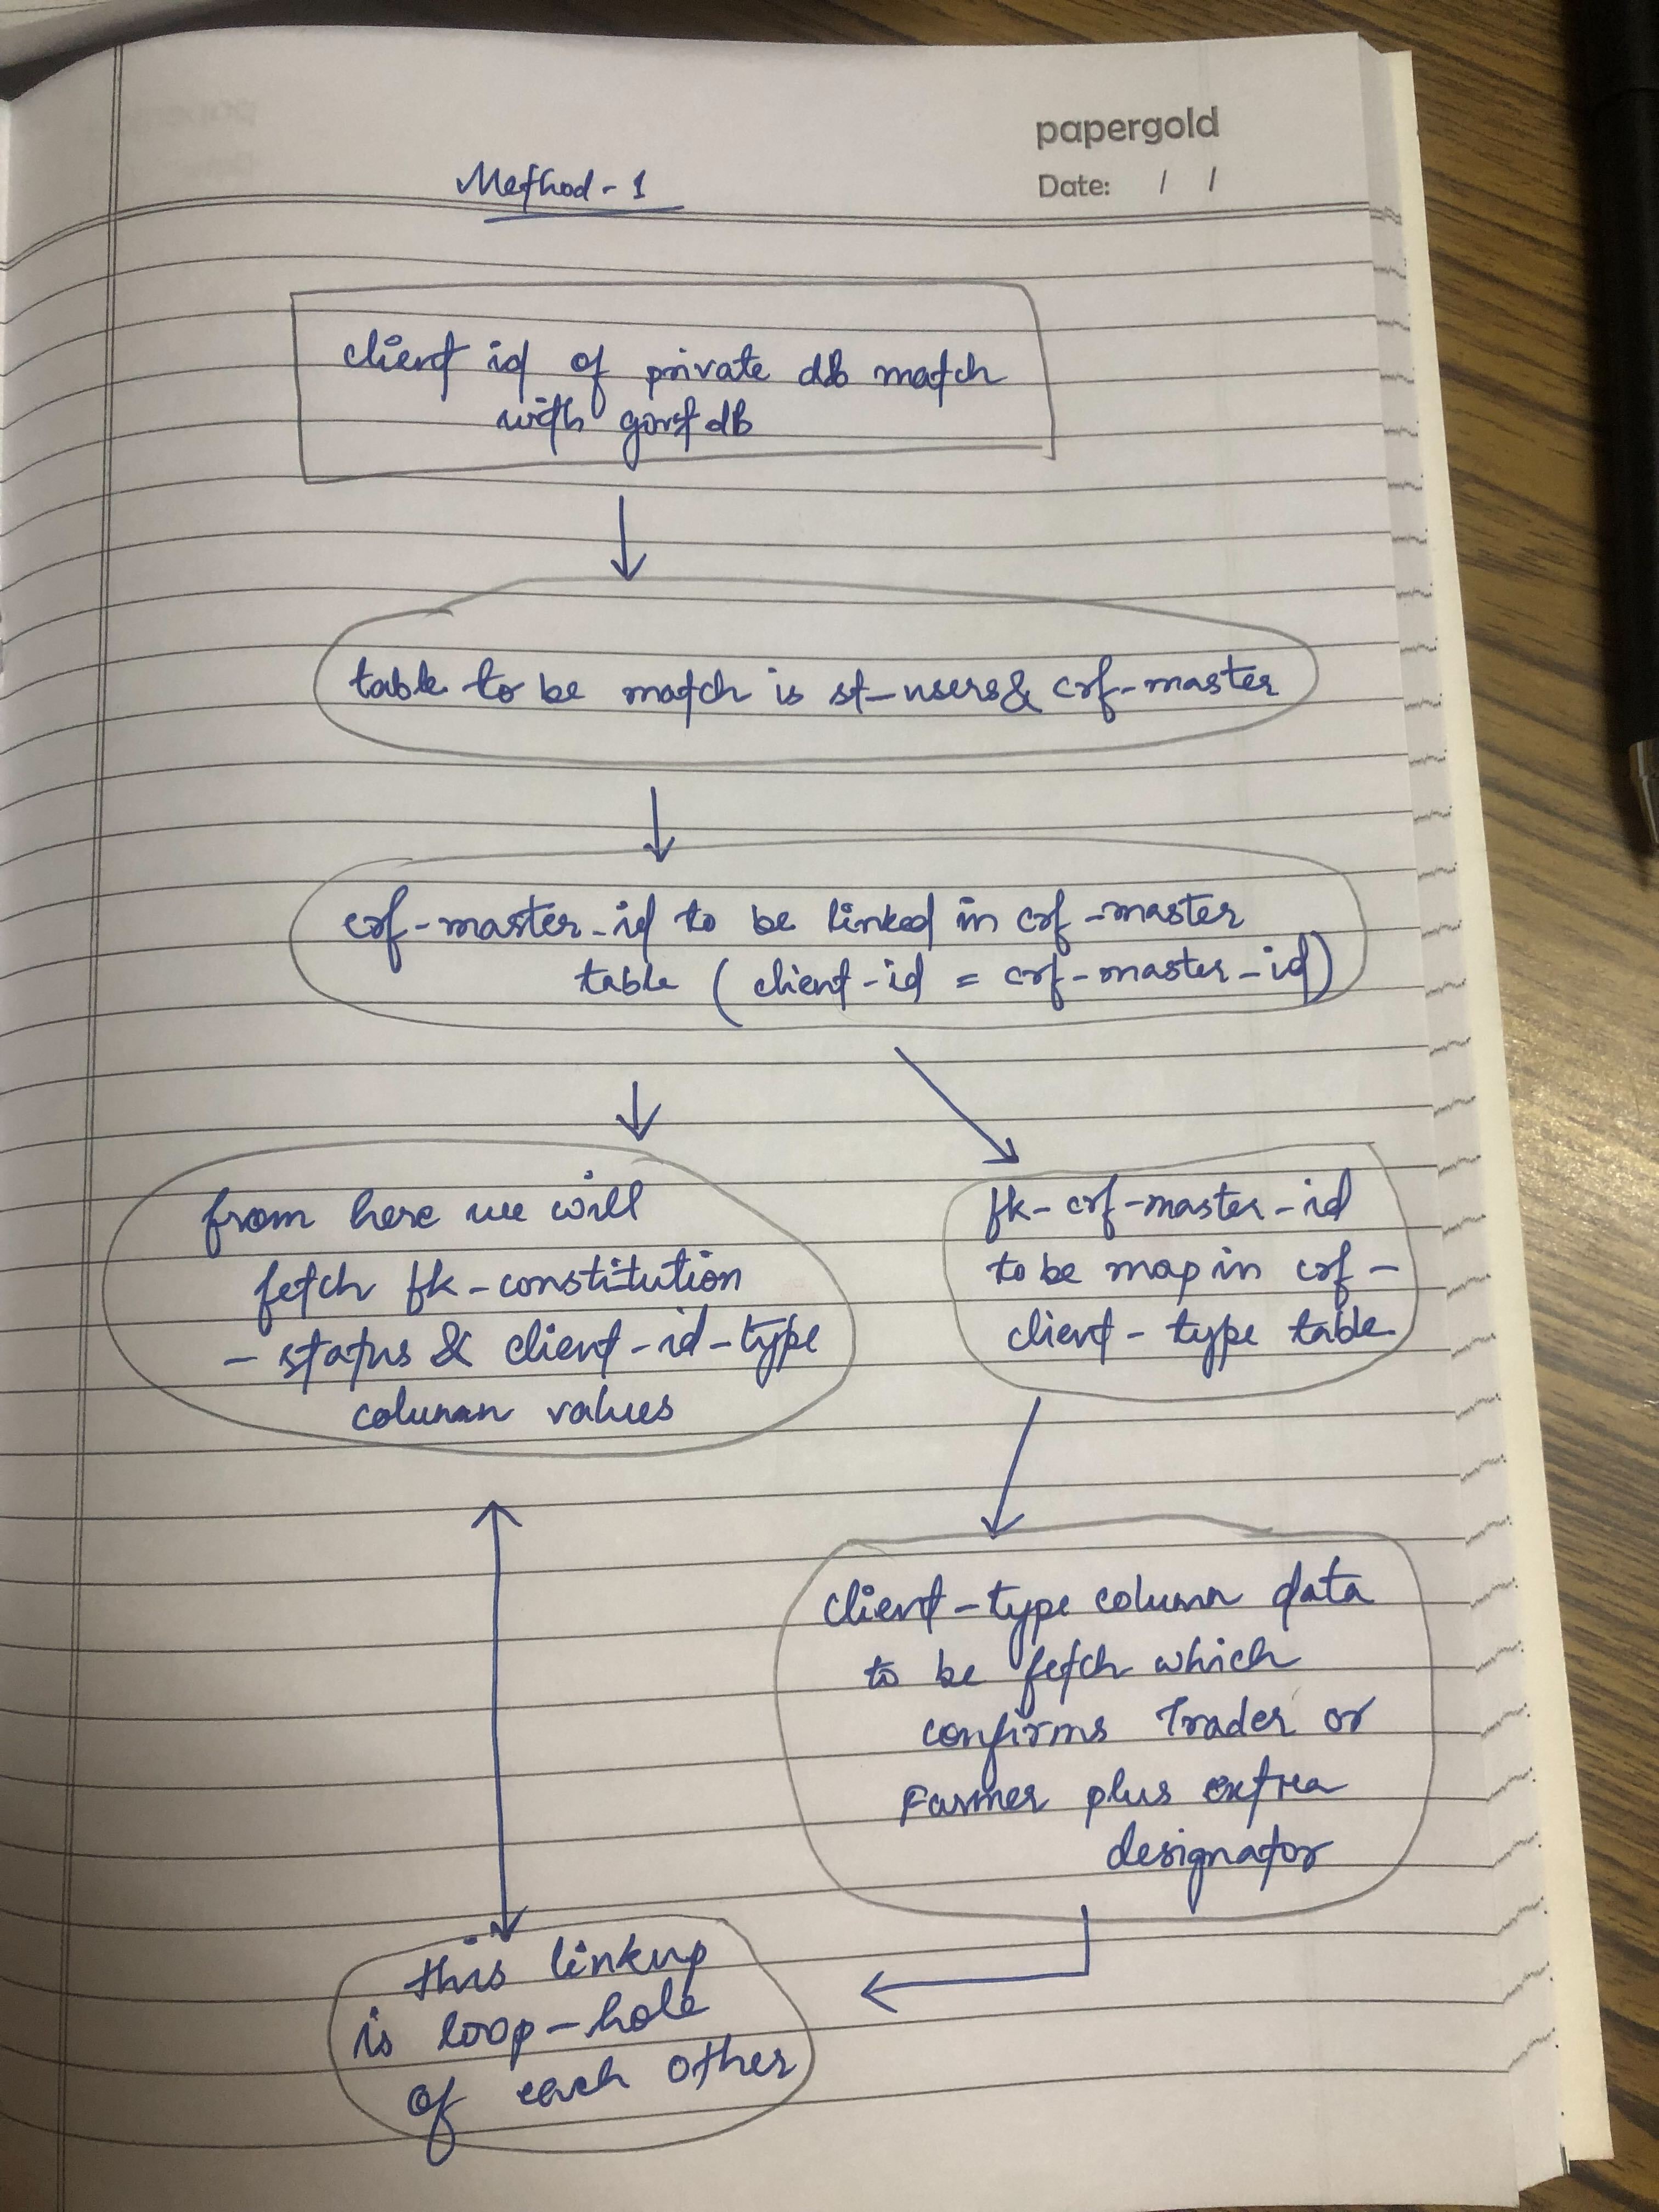 papergold
Date: / /
Method - 1
client id of private db match
with govt db
table to be match is st_users & crf-master
crf-master_id to be linked in crf-master
table (client-id = crf-master_id)
from here we will
fetch fk-constitution
- status & client-id-type
column values
fk-crf-master-id
to be map in crf-
client-type table
client-type column data
to be fetch which
confirms Trader or
Farmer plus extra
designator
this linkup
is loop-hole
of each other